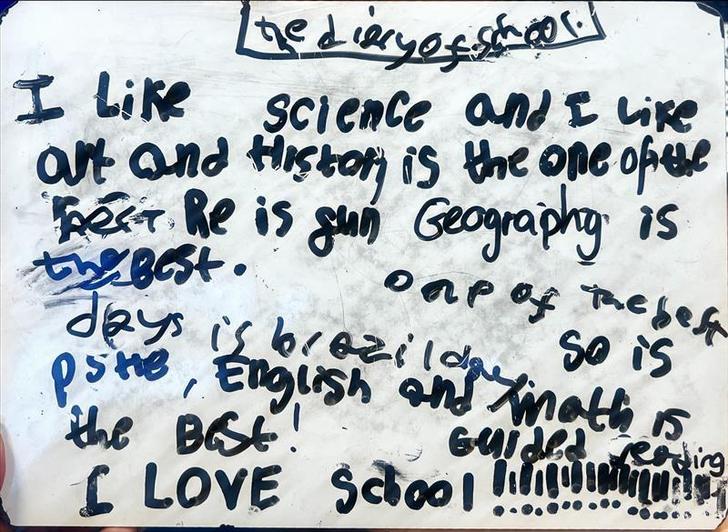 the diary of school.
I Like science and I Like
art and History is the one of the
Best Re is fun Geography is
the BEST.
one of the best
days is brazil day so is
PSHE, English and math is
the BESt! Guided reading
I LOVE School!!!!!!!!!!!!!!!